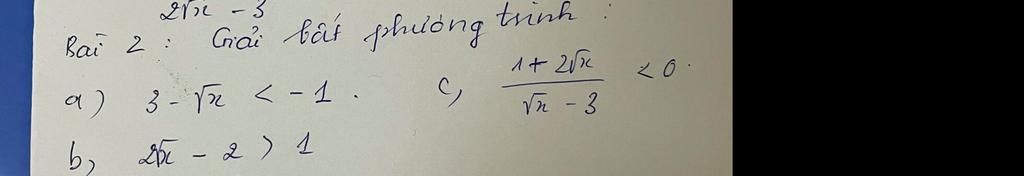 2√x - 3
Bài 2 : Giải bất phương trình :
a) 3 - √x < -1 .
c, (1 + 2√x)/(√x - 3) < 0 .
b, 2√x - 2 > 1